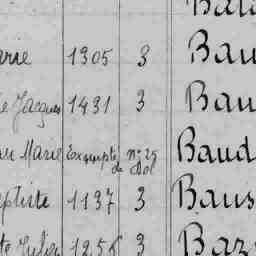 1305 3 Bau
e Jacques 1431 3 Bau
Marie Exempté de n° 29 Dol Baud
ptiste 1137 3 Baus
Julien 1256 3 Baz